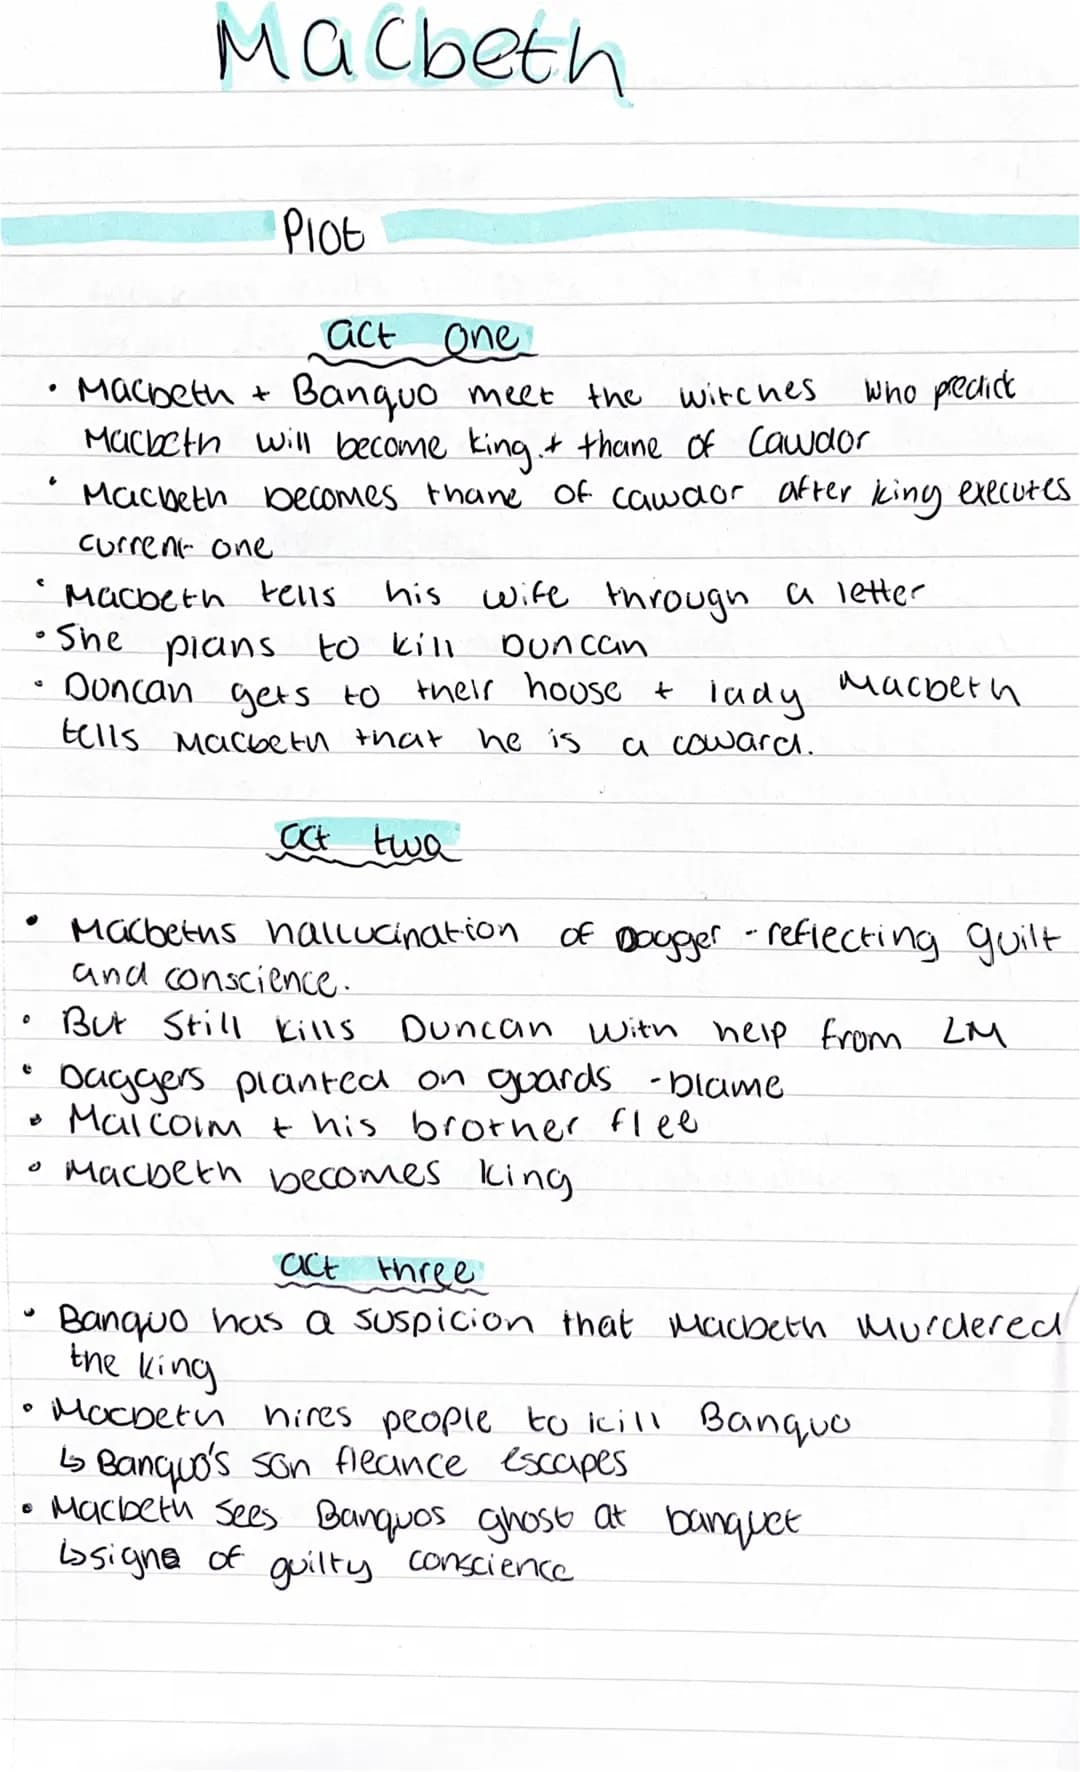 Macbeth
Plot
act one
• Macbeth + Banquo meet the witches who predict
Macbeth will become king.+ thane of Cawdor
• Macbeth becomes thane of cawdor after king executes
current one
• Macbeth tells his wife through a letter
• She plans to kill Duncan
• Duncan gets to their house + lady Macbeth
tells Macbeth that he is a coward.
act two
• Macbeths hallucination of Dagger - reflecting guilt
and conscience.
• But still kills Duncan with help from LM
• Daggers planted on guards - blame
• Malcolm + his brother flee
• Macbeth becomes king
act three
• Banquo has a suspicion that Macbeth Murdered
the king
• Macbeth hires people to kill Banquo
↳ Banquo's son fleance escapes
• Macbeth sees Banquos ghost at banquet
↳ signs of guilty conscience